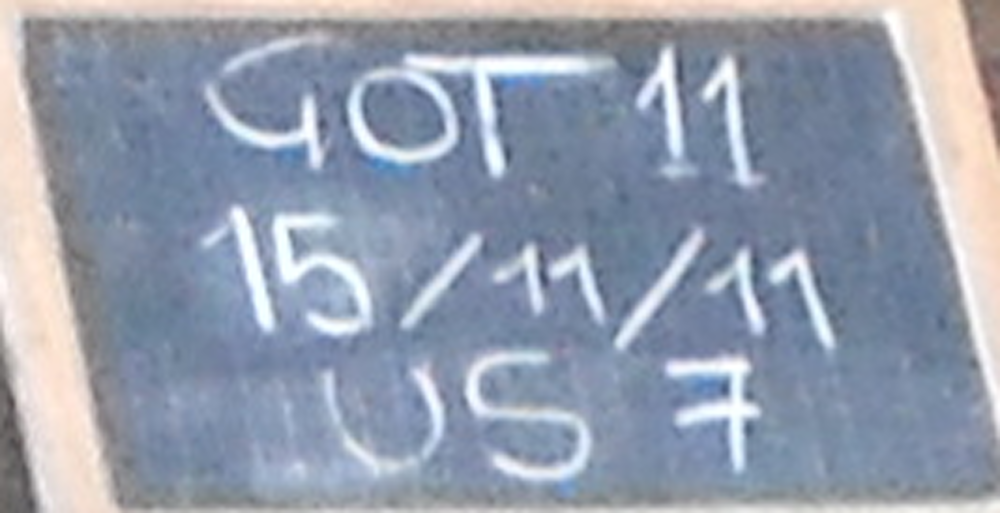 GOT 11
15/11/11
US 7